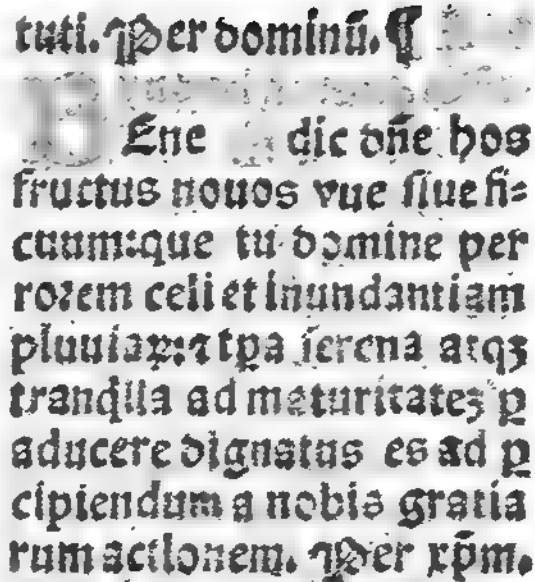 tuti. Per dominū. ¶
Ene dic dn̄e hos
fructus nouos vue siue fi⸗
cuum:que tu domine per
roꝛem celi et inundantiam
pluuiaꝝ:⁊ tp̄a serena atqꝫ
tranq̇lla ad maturitateꝫ ꝑ
aducere dignatus es ad ꝑ
cipiendum a nobis gratia
rum actionem. Per xp̄m.